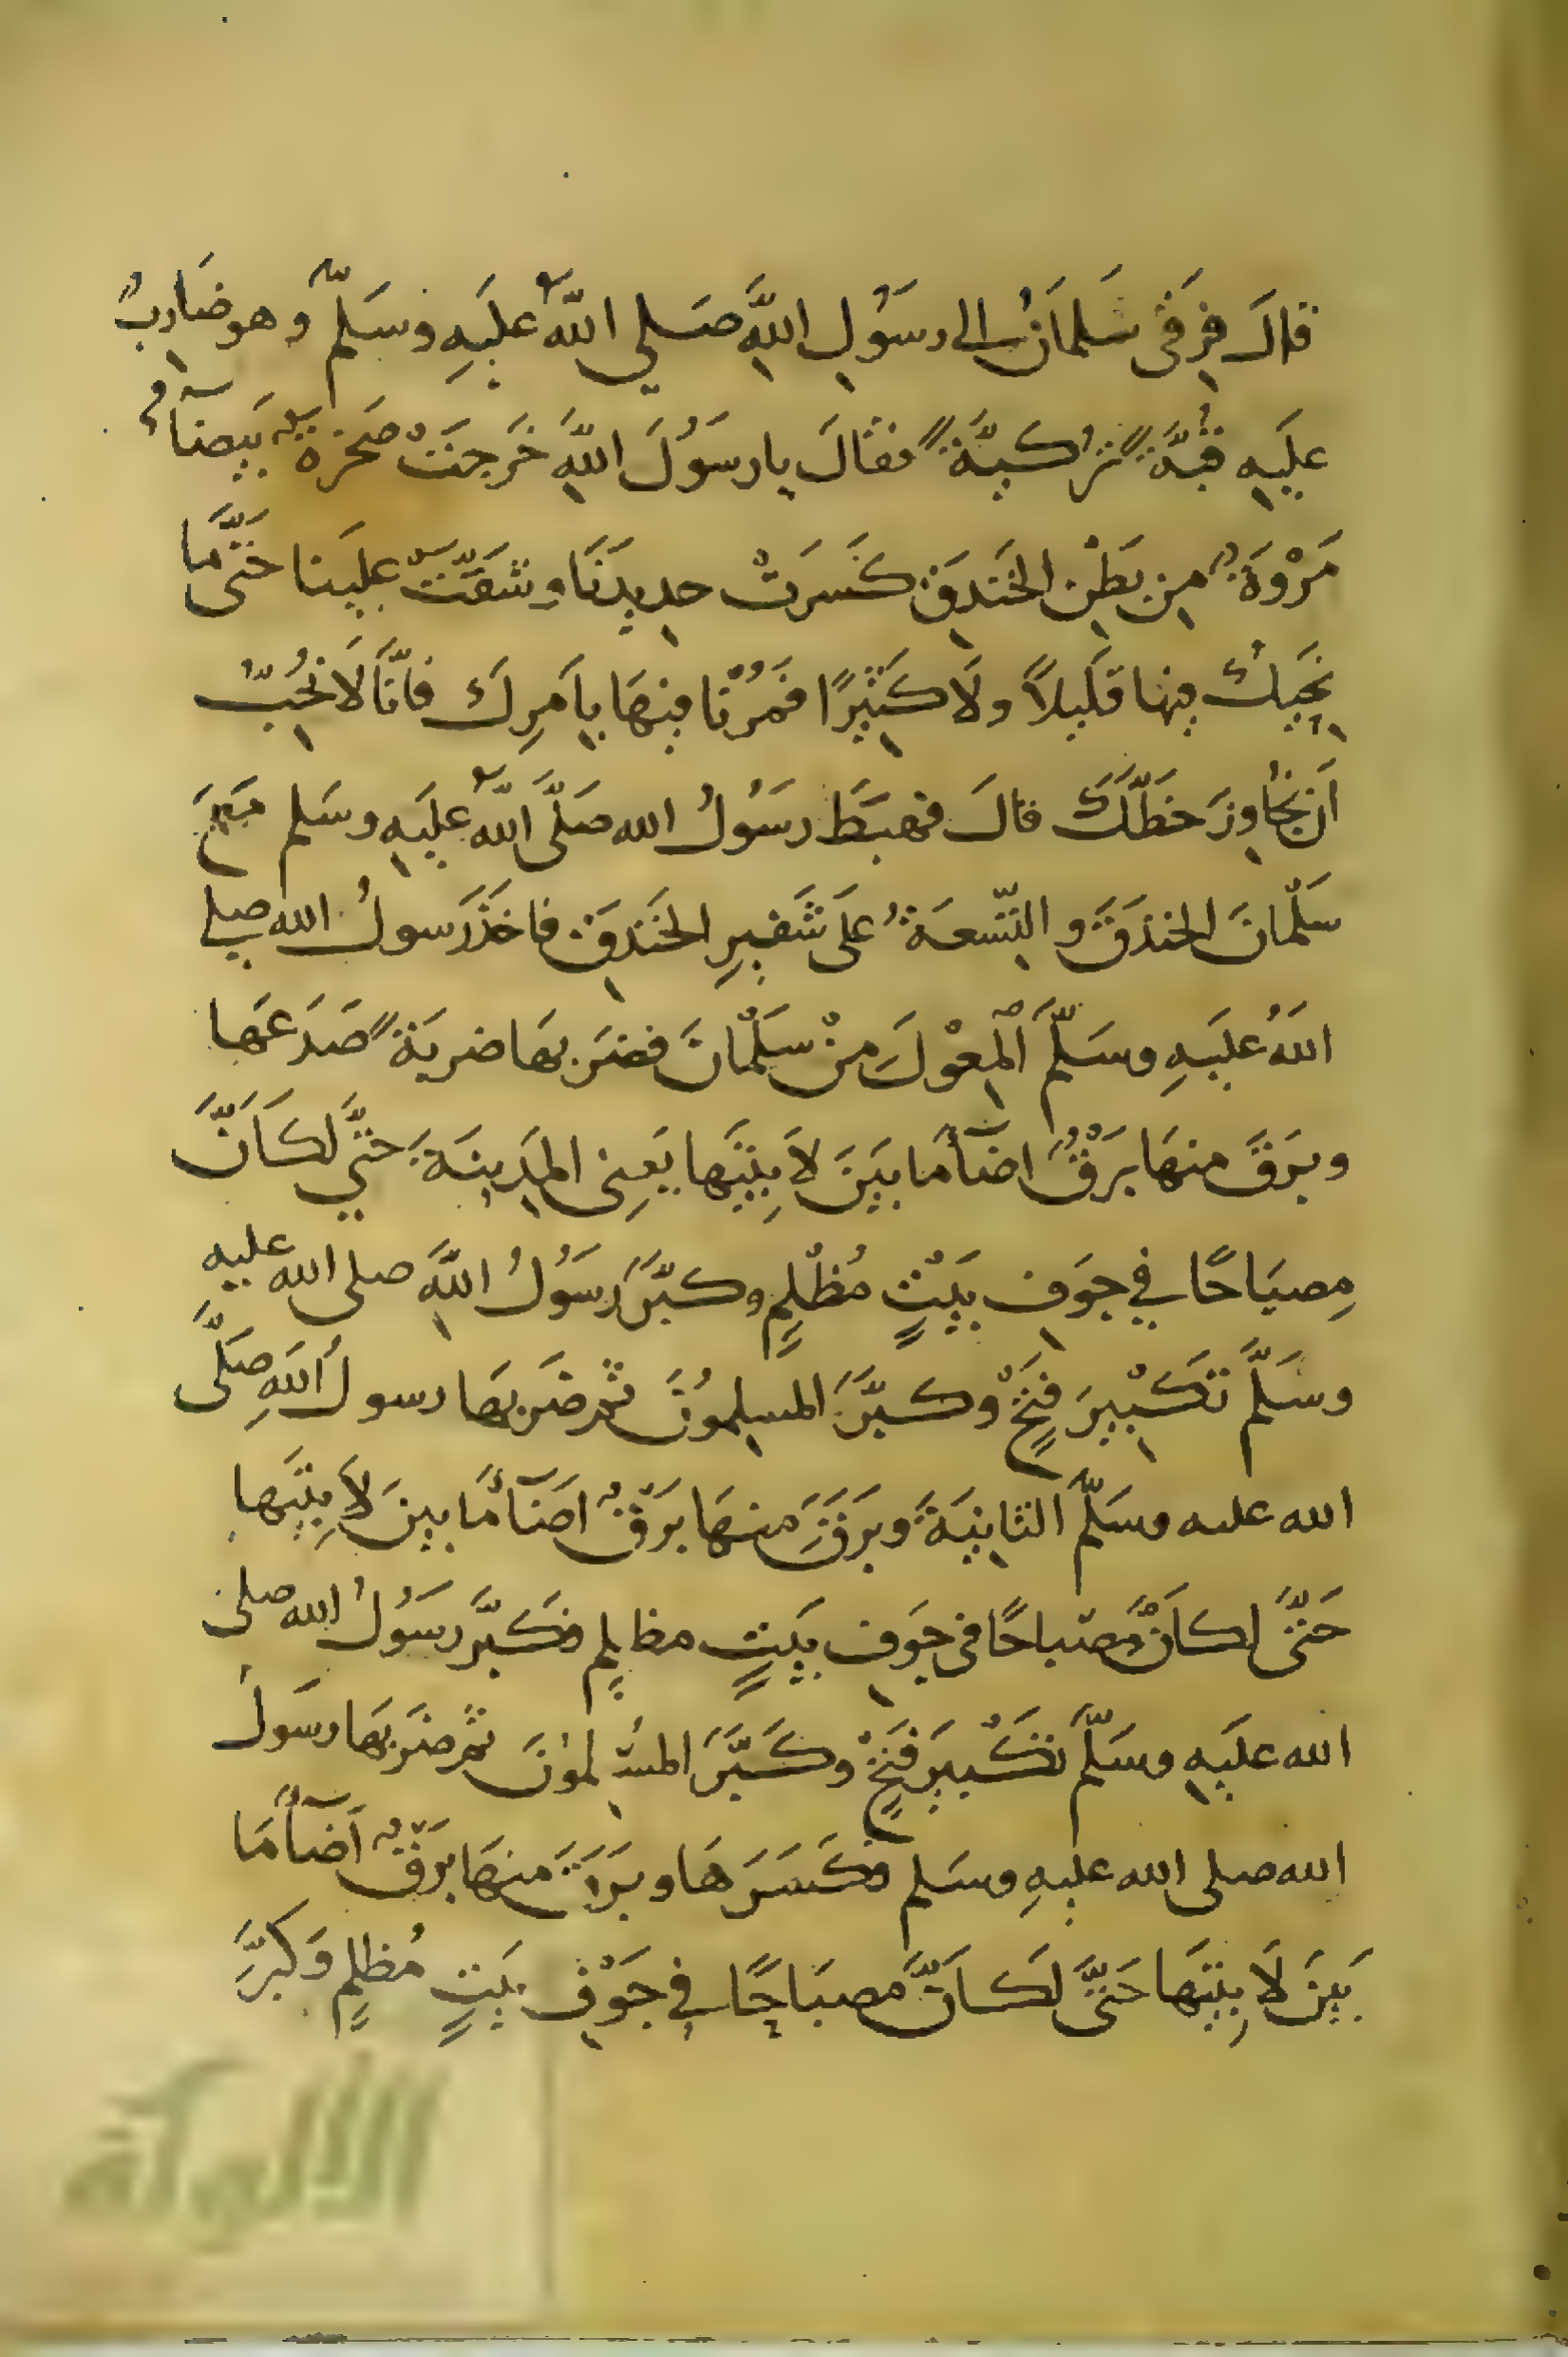 قالَ فرِقَى سَلمَانُ الى رسَوُلِ اللَّهِ صَلي اللّهُ علَيهِ وسَلمّ وهو ضَاربٌ
علَيهِ قبُةًّ تُركيةًّ فقالَ يا رسَوُلَ اللَّهِ خَرجَتْ صَخرةٌ بَيضآءُ
مَرْوَةٌ مِن بَطْنِ الخَندَقِ كَسَرتْ حدِيدَنَا وشَقَّتْ علَينا حَتَّى مَا
يَحِيكُ فيِها قَلَيلاً ولَا كَثيِرًا فَمُرْنا فيِهَا بِاَمرِكَ فانَّا لَا نُحِبُّ
اَن نجُاوِزَ خَطَّكَ قالَ فهبَطَ رسَوُلُ الله صَلَّى اللّهُ علَيهِ وسَلم مَعَ
سَلْمانَ الخندَقَ والتّسِعَةُ عَلَى شَفيرِ الخَندَقِ فاخَذَ رَسولُ الله صلي
اللَهُ علَيهِ وسَلّمَ اْلمِعْوَلَ مِنْ سَلْمَانَ فضَربهَا ضربَةً صَدَعَها
وبرَقَ منهَا بَرْقٌ اضَآءَ مَا بيَنَ لاَبِتَيها يَعِنى المَدِينَةَ حَتَّي لكَاَنَّ
مِصبَاحًا في جوَفِ بَيْتٍ مُظْلِمٍ وكبَّرَ رَسَوُلُ اللَّهِ صلى الله عليه
وسَلَّمَ تَكْبِيرَ فَتحٍْ وكبَّرَ المسلِموُنَ ثمُ ضَربهَا رسولُ اللَهِ صَلَّى
الله عليه وسَلّمَ الثانِيَةَ وبَرَقَ منهَا بَرْقٌ اضَآءَ مَا بينَ لاَبِتَيها
حَتَّى لكاَنَّ مصَباحًا فى جوَفِ بيَتٍ مظلِمٍ فكَبَّر رسَوُلُ الله صلى
الله علَيهِ وسَلَّمَ تَكْبيرَ فَتحٍْ وكَبَّرَ المسْلِموُنَ ثمُ ضَربهَا رسَولُ
الله صلى الله عليهِ وسَلم فكَسَرَهَا وبرَقَ منهَا بَرْقٌ اَضآءَ مَا
بَينَ لَابِتَيهَا حَتَّى لَكَاَنَّ مصبَاحًا فِي جَوْفِ بَيَتٍ مُظلِمٍ وَكَبَّرَ